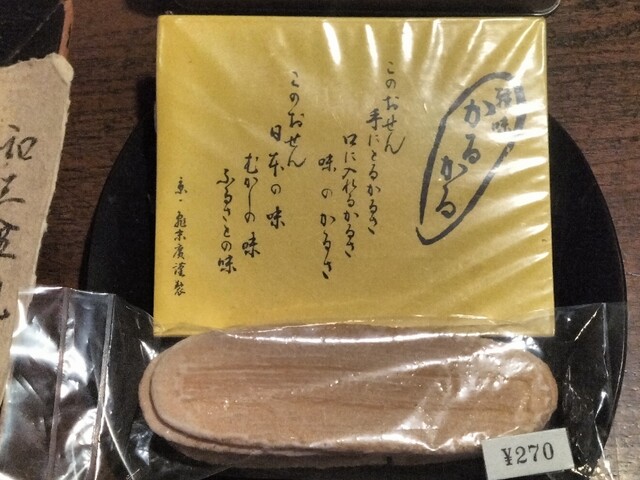 風味
かるかる
このおせん
手にとるかるさ
口に入れるかるさ
味のかるさ
このおせん
日本の味
むかしの味
ふるさとの味
京・亀末廣謹製
¥270